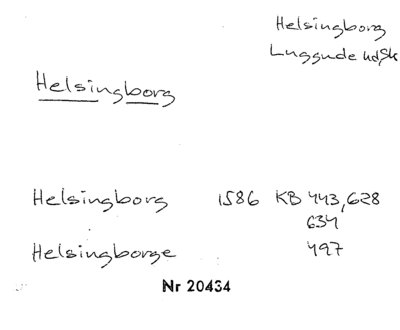 Helsingborg
Luggude hd, Sk
Helsingborg
Helsingborg 1586 KB 443,628
634
Helsingborge 497
Nr 20434